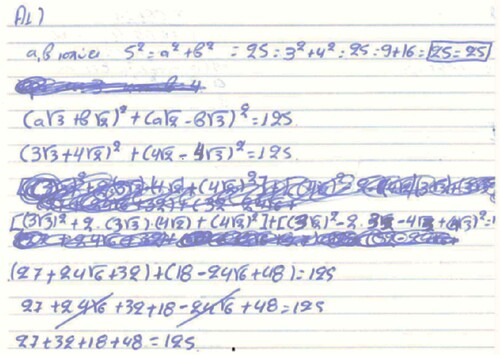 A1)
5² = a² + b² = 25 = 3² + 4² = 25 = 9 + 16 = 25 = 25
(a√3 + b√2)² + (a√2 - b√3)² = 125
(3√3 + 4√2)² + (4√2 - 4√3)² = 125
[(3√3)² + 2 · (3√3) · (4√2) + (4√2)²] + [(3√2)² - 2 · 3√2 - 4√3 + (4√3)² =
(27 + 24√6 + 32) + (18 - 24√6 + 48) = 125
27 + 24√6 + 32 + 18 - 24√6 + 48 = 125
27 + 32 + 18 + 48 = 125.